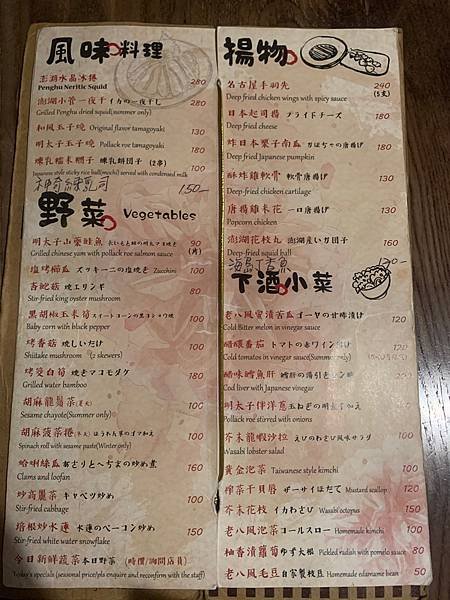 風味料理
澎湖水晶冰捲 280
Penghu Neritic Squid
澎湖小管一夜干イカの一夜干し 280
Grilled Penghu dried squid(summer only)
和風玉子燒 Original flavor tamagoyaki 130
明太子玉子燒 Pollack roe tamagoyaki 180
煉乳糯米糰子 煉乳餅団子 (2串) 100
Japanese style sticky rice ball(mochi) served with condensed milk
150
野菜 Vegetables
明太子山藥鮭魚 90
Grilled chinese yum with pollack roe salmon sauce (片)
塩烤櫛瓜 ズッキーニの塩焼き Zucchini 100
杏鮑菇 焼エリンギ 80
Stir-fried king oyster mushroom
黑胡椒玉米筍 スイートコーンの黒コショウ焼 100
Baby corn with black pepper
烤香菇 焼しいたけ 110
Shiitake mushroom (2 skewers)
烤筊白筍 焼きマコモダケ 180
Grilled water bamboo
胡麻龍鬚菜(夏天) 100
Sesame chayote(Summer only)
胡麻菠菜捲(冬天) ほうれん草のゴマ和え 100
Spinach roll with sesame paste(Winter only)
蛤蜊絲瓜 あさりとへちまの炒め煮 160
Clams and loofan
炒高麗菜 キャベツ炒め 100
Stir-fried cabbage
培根炒水蓮 水蓮のベーコン炒め 150
Stir-fried white water snowflake
今日新鮮蔬菜 本日野菜 (時價/詢問店員)
Today's specials (seasonal price/pls enquire and reconfirm with the staff)
揚物
名古屋手羽先 240
Deep fried chicken wings with spicy sauce (5支)
日本起司揚 フライドチーズ 180
Deep fried cheese
炸日本栗子南瓜 カぼちゃの唐揚げ 180
Deep fried Japanese pumpkin
酥炸雞軟骨 軟骨唐揚げ 130
Deep-fried chicken cartilage
唐揚雞米花 一口唐揚げ 130
Popcorn chicken
澎湖花枝丸 澎湖産いカ団子 160
Deep-fried squid ball
下酒小菜
老八風蜜漬苦瓜 ゴーヤの甘酢漬け 120
Cold Bitter melon in vinegar sauce
醋釀番茄 トマトの赤ワイン付け 100
Cold tomatoes in vinegar sauce(Summer only)
醋味鱈魚肝 200
Cod liver with Japanese vinegar
明太子伴洋蔥 玉ねぎの明太子和え 100
Pollack roe stirred with onions
芥末龍蝦沙拉 えびのわさび風味サラダ 100
Wasabi lobster salad
黃金泡菜 Taiwanese style kimchi 100
榨菜干貝唇 ザーサイほたて Mustard scallop 120
芥末花枝 イカわさび Wasabi octopus 150
老八風泡菜 コールスロー Homemade kimchi 100
柚香漬蘿蔔 ゆず大根 Pickled radish with pomelo sauce 80
老八風毛豆 自家製枝豆 Homemade edamame bean 50